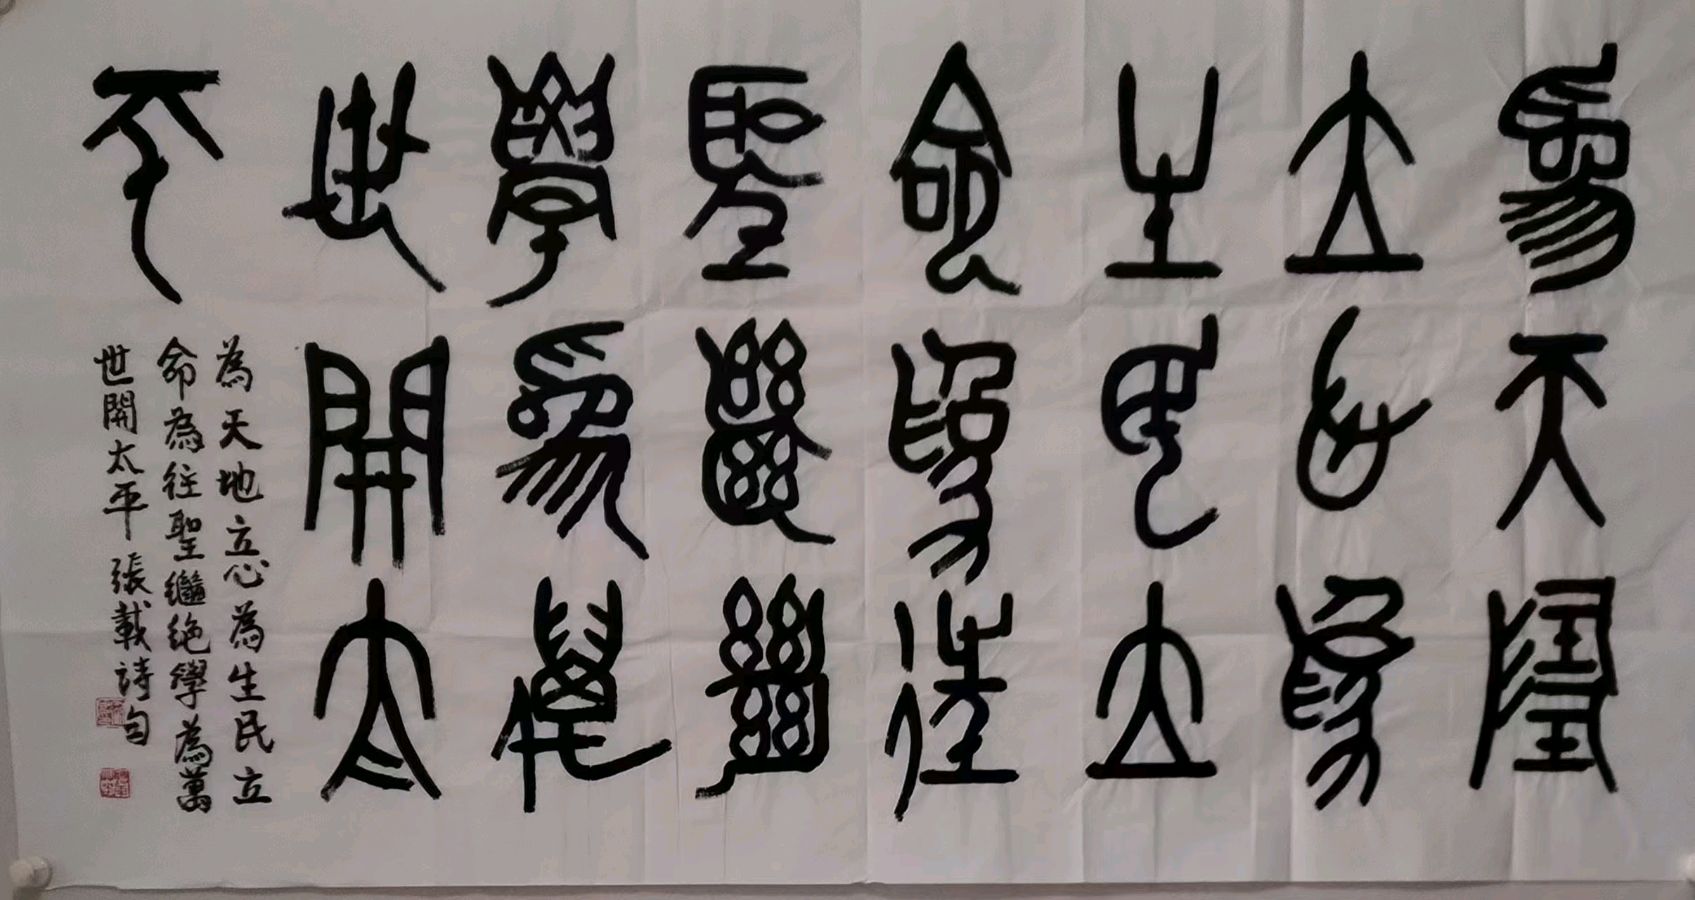 為天地
立心為
生民立
命為往
聖繼絕
學為萬
世開太
平
為天地立心為生民立
命為往聖繼絕學為萬
世開太平 張載詩句